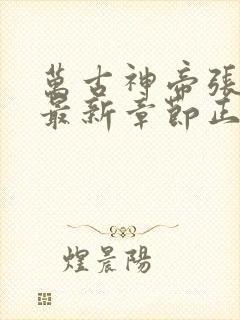 萬古神帝張
最新章節正
煌晨陽